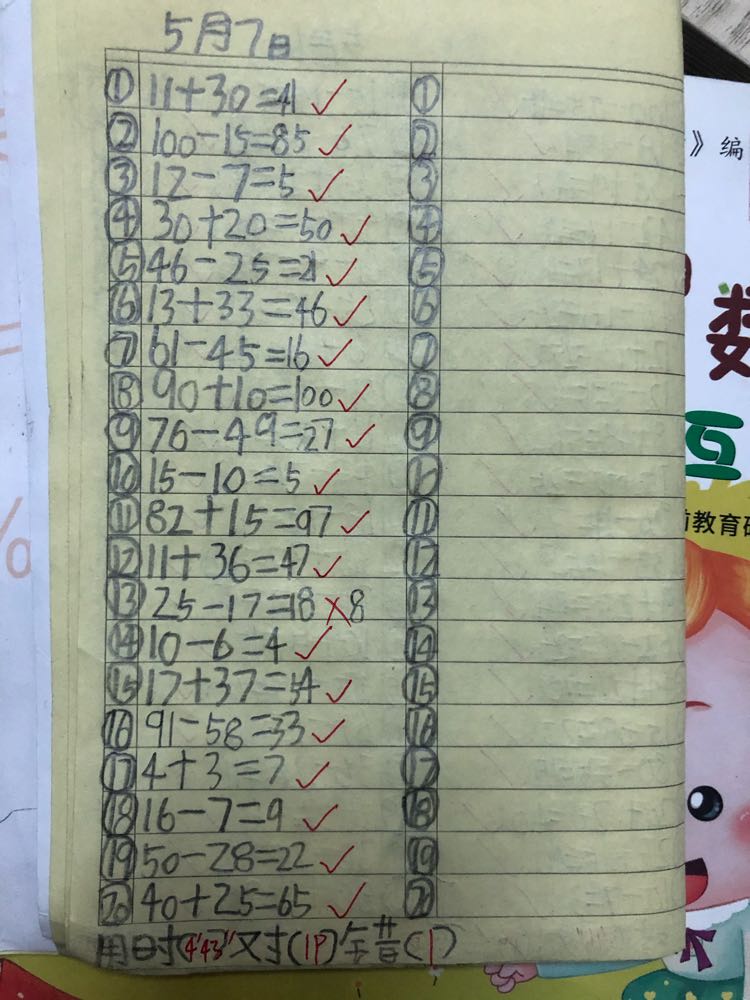 5月7日
① 11+30=41 ✓ ①
② 100-15=85 ✓ ②
③ 12-7=5 ✓ ③
④ 30+20=50 ✓ ④
⑤ 46-25=21 ✓ ⑤
⑥ 13+33=46 ✓ ⑥
⑦ 61-45=16 ✓ ⑦
⑧ 90+10=100 ✓ ⑧
⑨ 76-49=27 ✓ ⑨
⑩ 15-10=5 ✓ ⑩
⑪ 82+15=97 ✓ ⑪
⑫ 11+36=47 ✓ ⑫
⑬ 25-17=18 ✗8 ⑬
⑭ 10-6=4 ✓ ⑭
⑮ 17+37=54 ✓ ⑮
⑯ 91-58=33 ✓ ⑯
⑰ 4+3=7 ✓ ⑰
⑱ 16-7=9 ✓ ⑱
⑲ 50-28=22 ✓ ⑲
⑳ 40+25=65 ✓ ⑳
用时(4'43")对(19)错(1)
》编
数
互
教育研